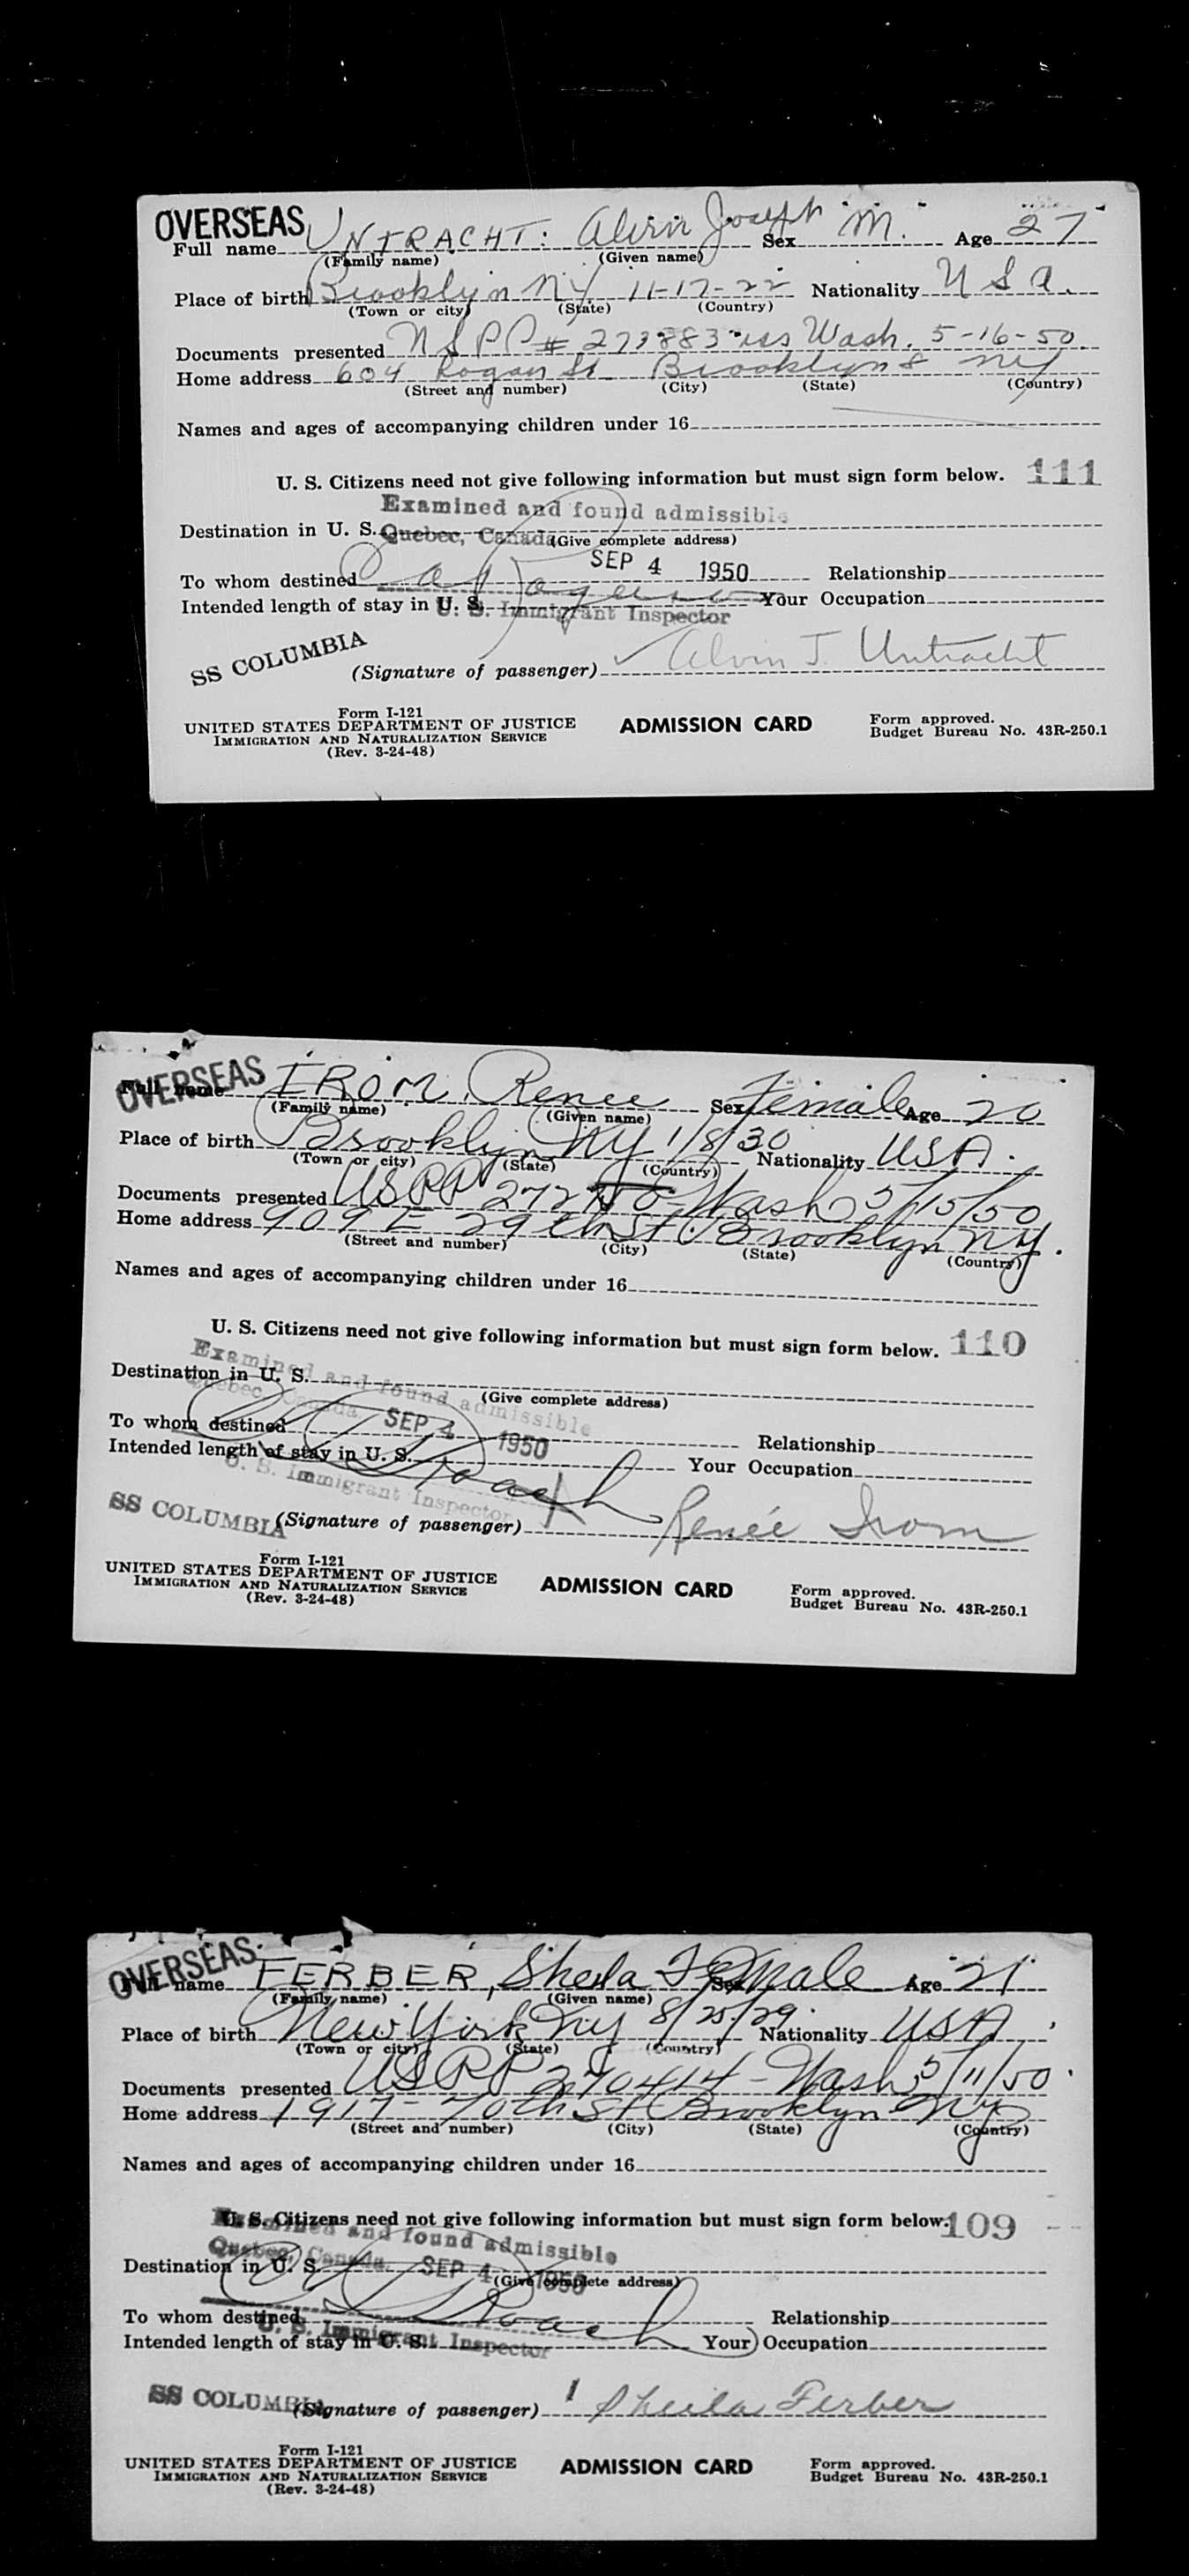 OVERSEAS
Full name UNTRACHT: Alvin Joseph Sex M. Age 27
(Family name) (Given name)
Place of birth Brooklyn NY 11-17-22 Nationality USA.
(Town or city) (State) (Country)
Documents presented USPP # 273883 iss Wash. 5-16-50.
Home address 604 St Brooklyn 8 NY
(Street and number) (City) (State) (Country)
Names and ages of accompanying children under 16
U. S. Citizens need not give following information but must sign form below. 111
Examined and found admissible
Destination in U. S. Quebec, Canada (Give complete address)
SEP 4 1950
To whom destined Relationship
Intended length of stay in U. S. Your Occupation
U. S. Immigrant Inspector
SS COLUMBIA
(Signature of passenger) Alvin J. Untracht
Form I-121
UNITED STATES DEPARTMENT OF JUSTICE ADMISSION CARD Form approved.
IMMIGRATION AND NATURALIZATION SERVICE Budget Bureau No. 43R-250.1
(Rev. 3-24-48)
OVERSEAS
Full name IROM, Renee Sex Female Age 20
(Family name) (Given name)
Place of birth Brooklyn NY 1/8/30 Nationality USA.
(Town or city) (State) (Country)
Documents presented USPP Wash 5/15/50
Home address 909 E 29th St Brooklyn NY.
(Street and number) (City) (State) (Country)
Names and ages of accompanying children under 16
U. S. Citizens need not give following information but must sign form below. 110
Examined and found admissible
Destination in U. S.
Quebec, Canada (Give complete address)
SEP 4 1950
To whom destined Relationship
Intended length of stay in U. S. Roach Your Occupation
U. S. Immigrant Inspector
SS COLUMBIA
(Signature of passenger) Renée Irom
Form I-121
UNITED STATES DEPARTMENT OF JUSTICE ADMISSION CARD Form approved.
IMMIGRATION AND NATURALIZATION SERVICE Budget Bureau No. 43R-250.1
(Rev. 3-24-48)
OVERSEAS
Full name FERBER, Sheila Sex Female Age 21
(Family name) (Given name)
Place of birth New York NY 8/25/29. Nationality USA
(Town or city) (State) (Country)
Documents presented USPP 270414 - Wash 5/11/50.
Home address 1917- 70th St Brooklyn NY
(Street and number) (City) (State) (Country)
Names and ages of accompanying children under 16
U. S. Citizens need not give following information but must sign form below. 109
Examined and found admissible
Quebec, Canada. SEP 4 1950
Destination in U. S. (Give complete address)
To whom destined Roach Relationship
U. S. Immigrant Inspector
Intended length of stay in U. S. Your Occupation
SS COLUMBIA
(Signature of passenger) Sheila Ferber
Form I-121
UNITED STATES DEPARTMENT OF JUSTICE ADMISSION CARD Form approved.
IMMIGRATION AND NATURALIZATION SERVICE Budget Bureau No. 43R-250.1
(Rev. 3-24-48)